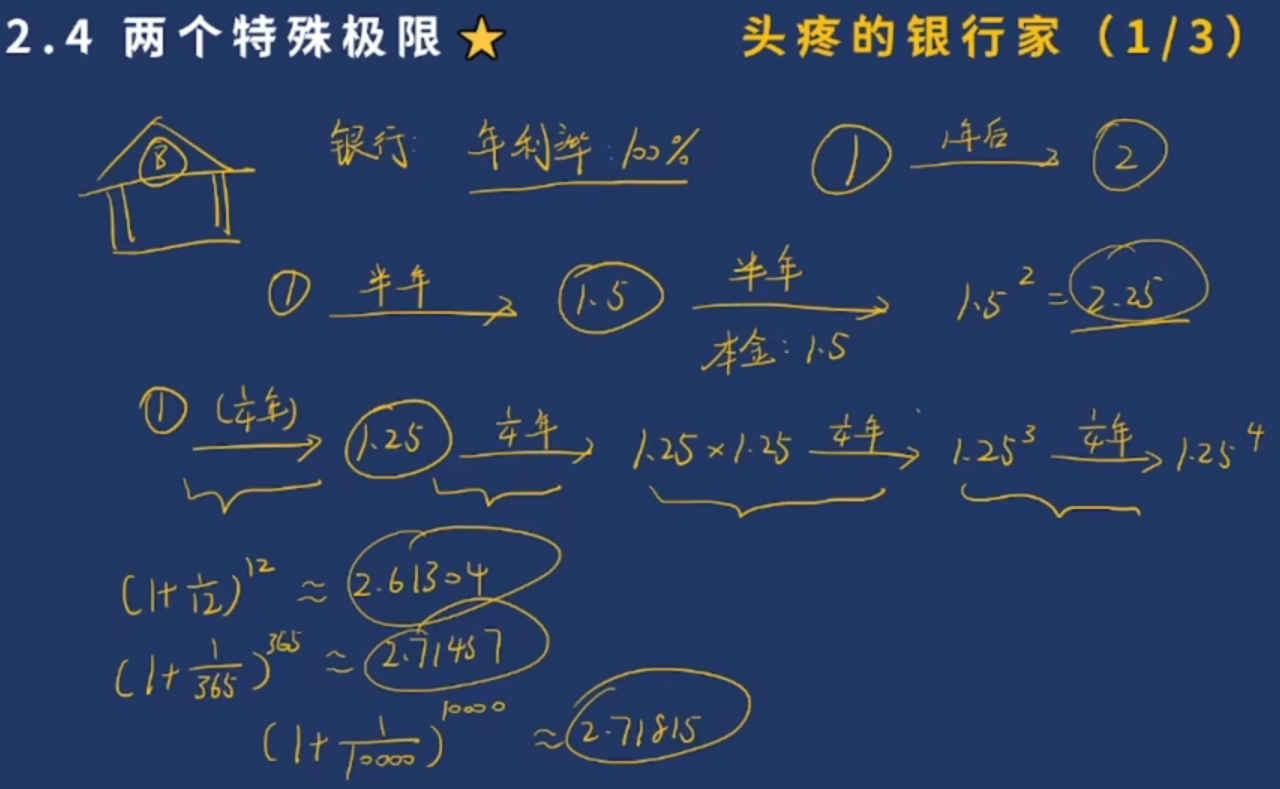 2.4 两个特殊极限 头疼的银行家（1/3）
B 银行: 年利率:100% ① 1年后 ②
① 半年 1.5 半年 1.5² = 2.25
本金: 1.5
① (1/4年) 1.25 1/4年 1.25×1.25 1/4年 1.25³ 1/4年 1.25⁴
(1+1/12)¹² ≈ 2.61304
(1+1/365)³⁶⁵ ≈ 2.71457
(1+1/10000)¹⁰⁰⁰⁰ ≈ 2.71815